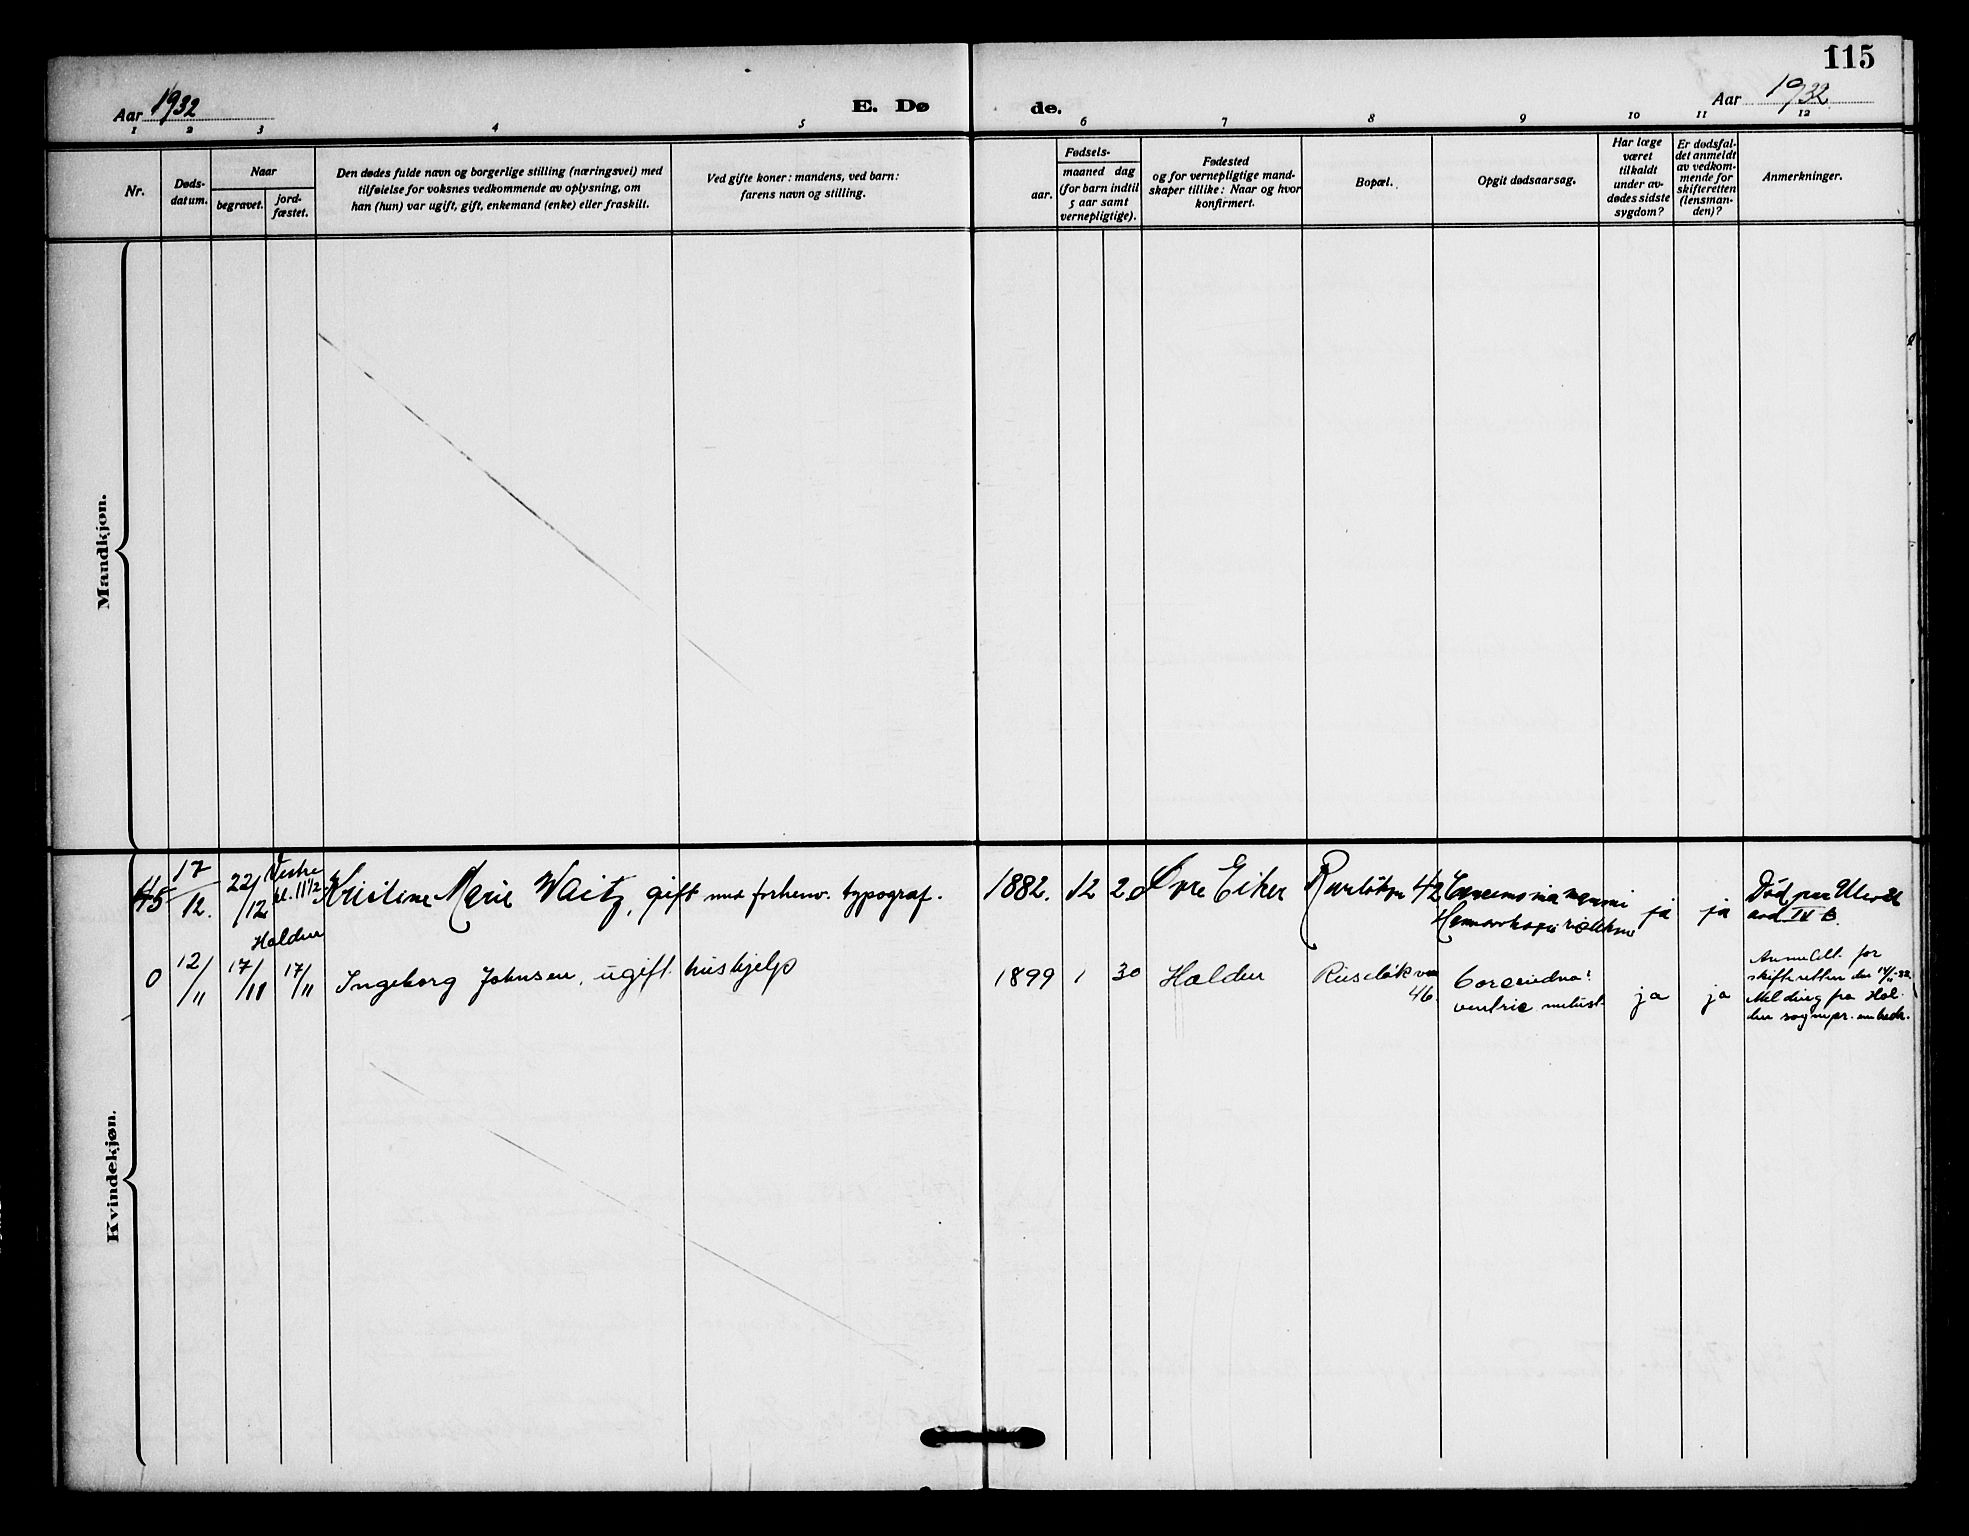 115
Aar 1932
E. Døde.
Aar 1932
1 2 3 4 5 6 7 8 9 10 11 12
Nr.
Døds-
datum.
Naar
begravet.
jord-
fæstet.
Den dødes fulde navn og borgerlige stilling (næringsvei) med
tilføielse for voksnes vedkommende av oplysning, om
han (hun) var ugift, gift, enkemand (enke) eller fraskilt.
Ved gifte koner: mandens, ved barn:
farens navn og stilling.
Fødsels-
aar.
maaned dag
(for barn indtil
5 aar samt
vernepligtige).
Fødested
og for vernepligtige mand-
skaper tillike: Naar og hvor
konfirmert.
Bopæl.
Opgit dødsaarsag.
Har læge
været
tilkaldt
under av-
dødes sidste
sygdom?
Er dødsfal-
det anmeldt
av vedkom-
mende for
skifteretten
(lensman-
den)?
Anmerkninger.
Mandkjøn.
Kvindekjøn.
45
17/12.
22/12
Vestre
kl. 11 1/2
Kristine Marie Waitz, gift med forhenv. typograf.
1882. 12 20
Øvre Eiker
42
ja
ja
Død paa Ullevål
avd IV B.
0
12/11
Halden
17/11
17/11
Ingeborg Johnsen, ugift hushjelp
1899 1 30
Halden
46.
ja
ja
Anmeldt for
skifteretten den
Melding fra Hal-
den sognepr. embede.